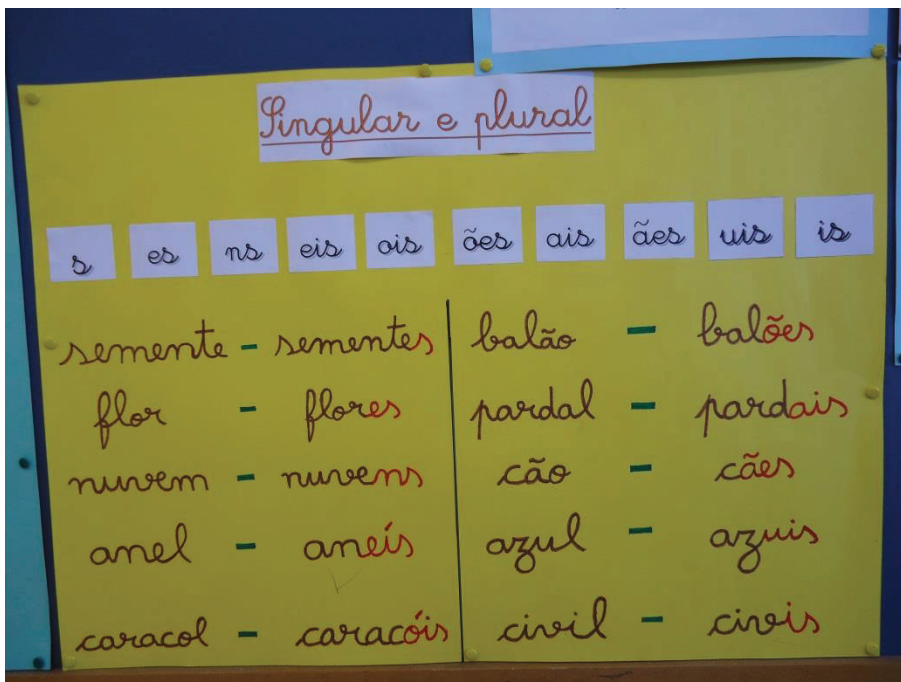 Singular e plural
s es ns eis ois ões ais ães uis is
semente - sementes
flor - flores
nuvem - nuvens
anel - aneís
caracol - caracóis
balão - balões
pardal - pardais
cão - cães
azul - azuis
civil - civis